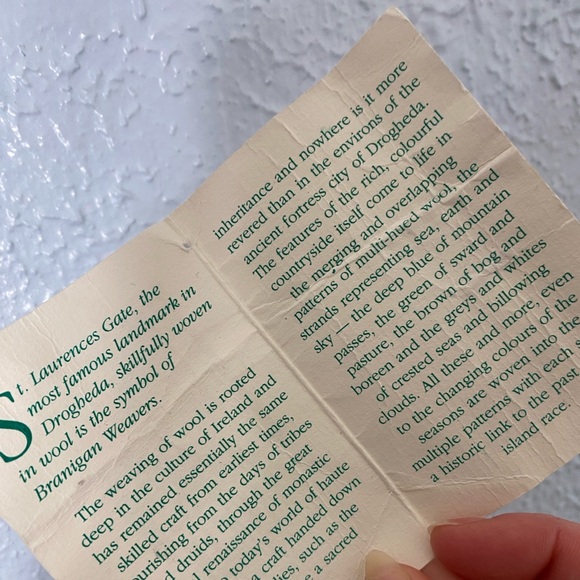 St. Laurences Gate, the
most famous landmark in
Drogheda, skillfully woven
in wool is the symbol of
Branigan Weavers.
The weaving of wool is rooted
deep in the culture of Ireland and
has remained essentially the same
skilled craft from earliest times,
ourishing from the days of tribes
d druids, through the great
l renaissance of monastic
o today's world of haute
a craft handed down
lies, such as the
e a sacred
inheritance and nowhere is it more
revered than in the environs of the
ancient fortress city of Drogheda.
The features of the rich, colourful
countryside itself come to life in
the merging and overlapping
patterns of multi-hued wool, the
strands representing sea, earth and
sky — the deep blue of mountain
passes, the green of sward and
pasture, the brown of bog and
boreen and the greys and whites
of crested seas and billowing
clouds. All these and more, even
to the changing colours of the
seasons are woven into the
multiple patterns with each s
a historic link to the past
island race.